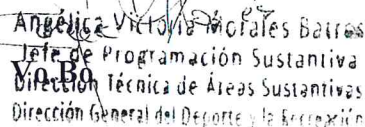 Angélica Victoria Morales Barrios
Jefe de Programación Sustantiva
Vo.Bo.
Dirección Técnica de Áreas Sustantivas
Dirección General del Deporte y la Recreación